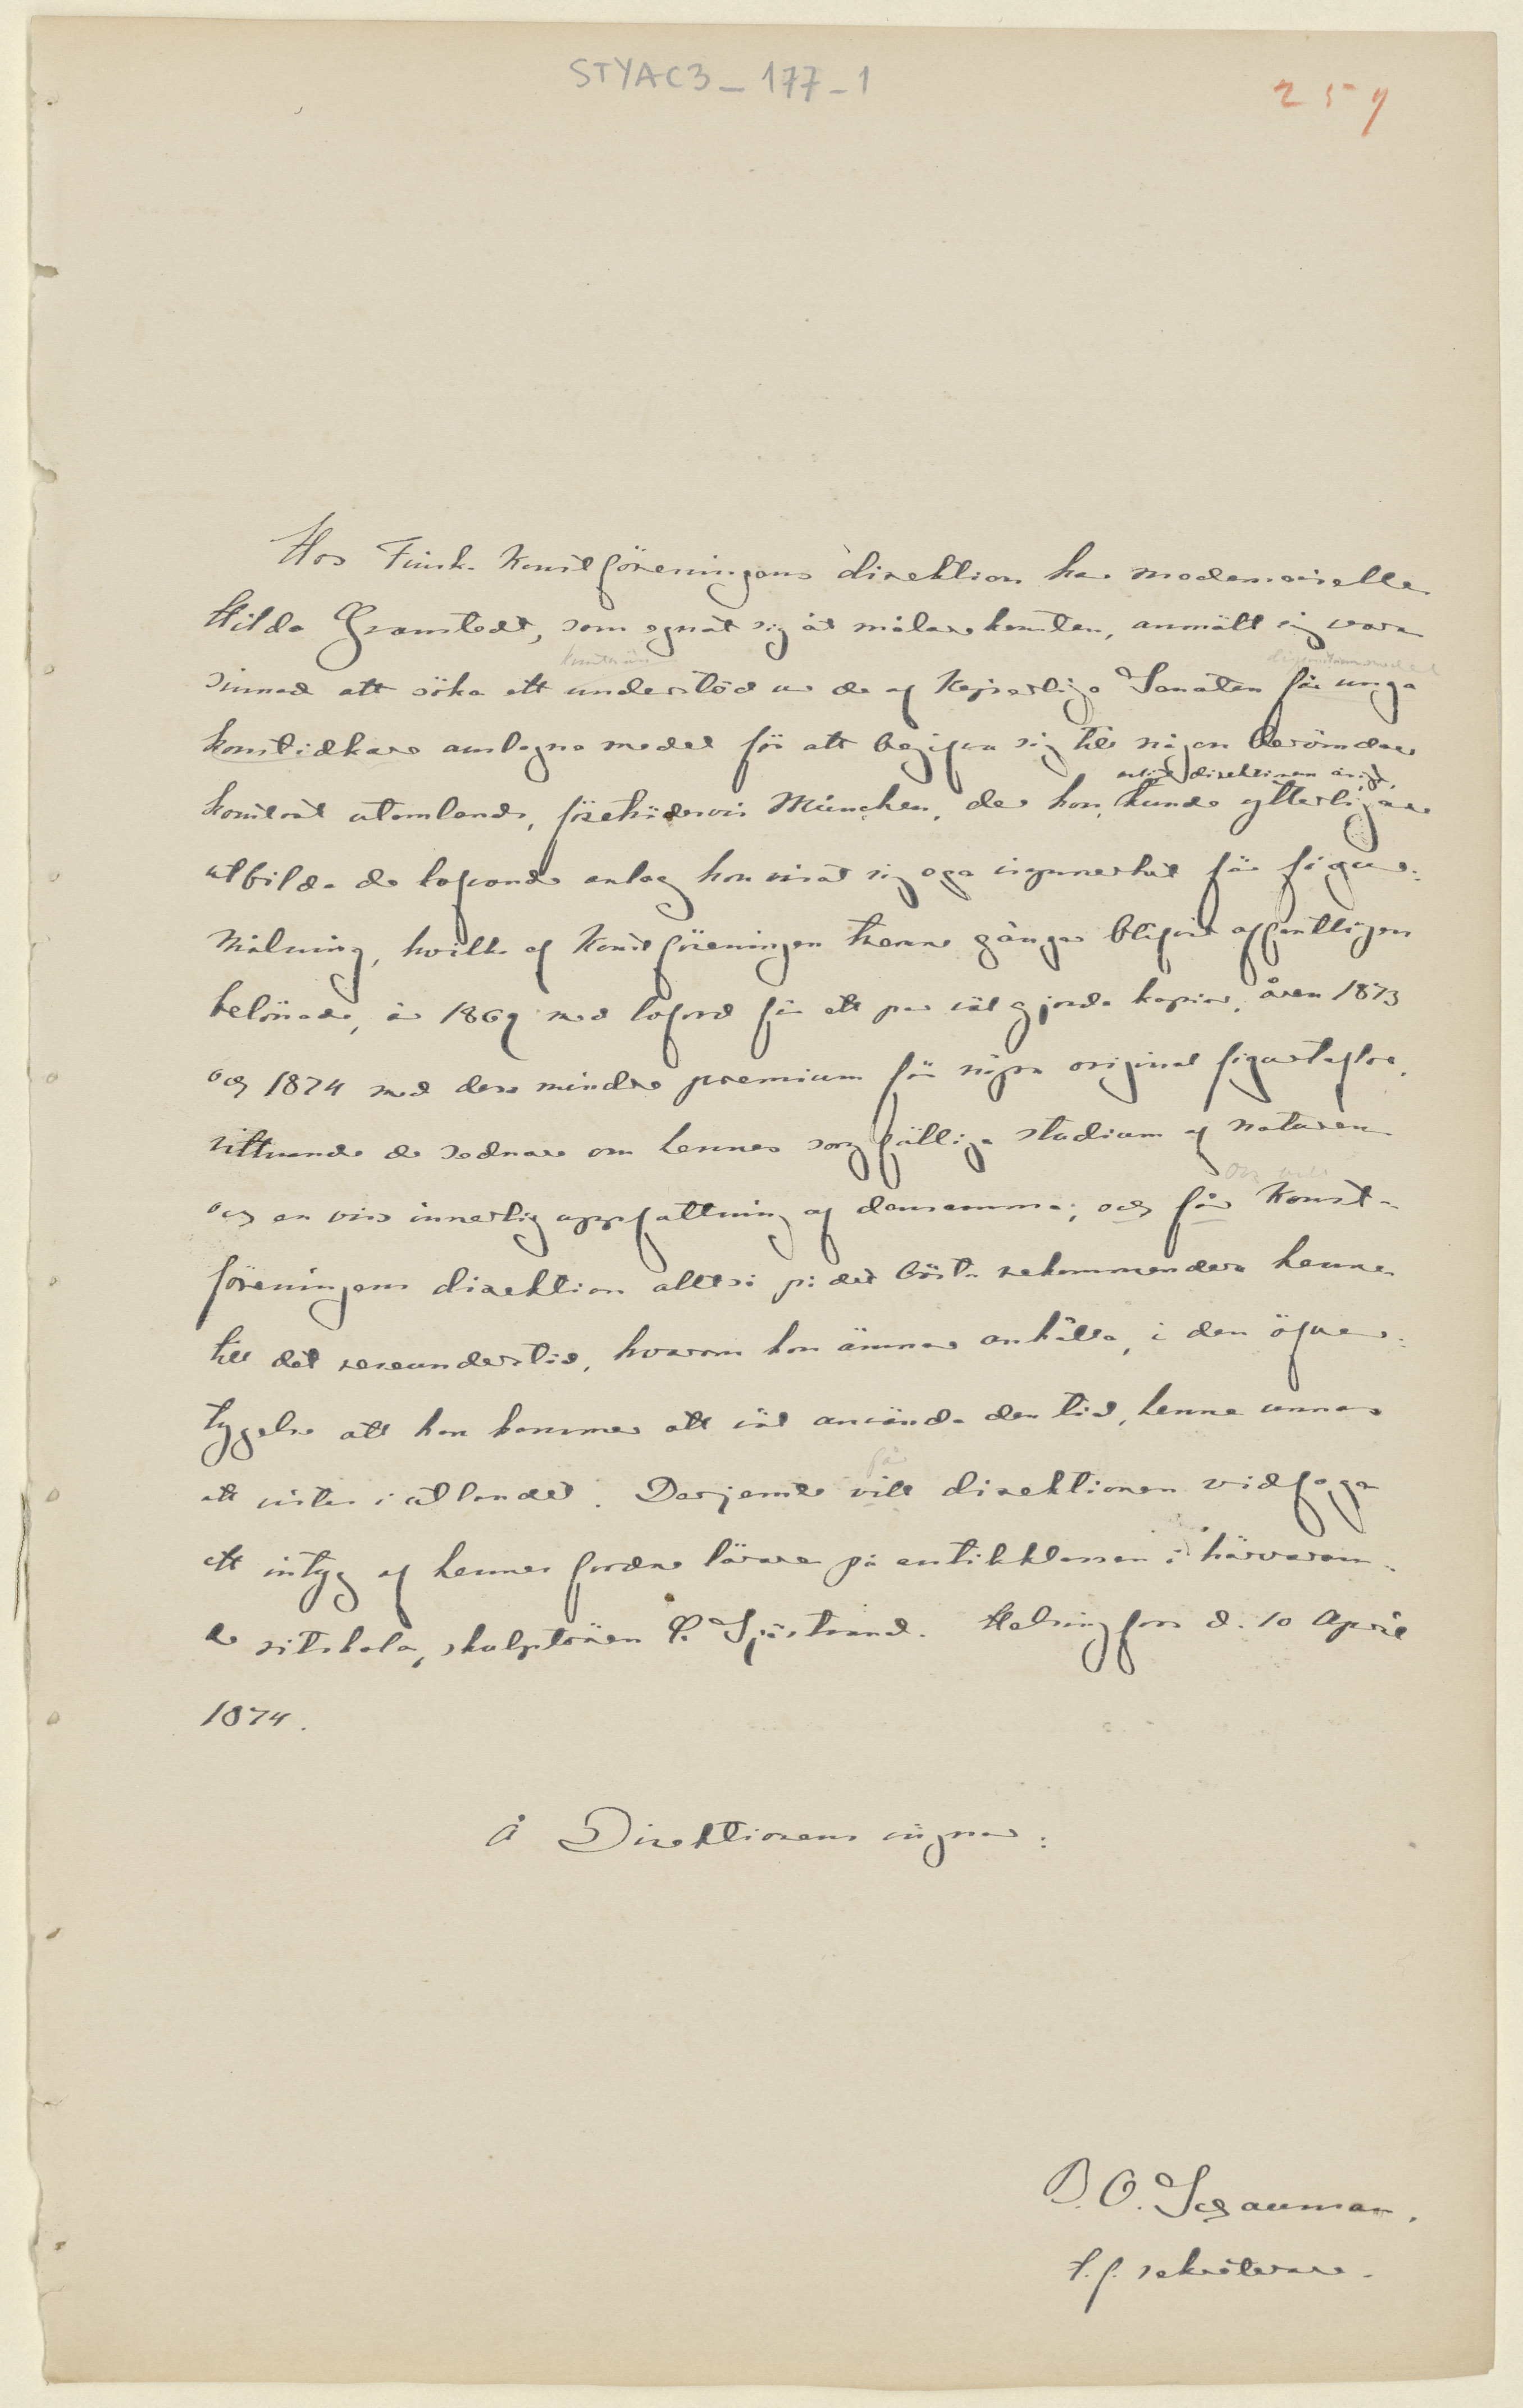 STYAC3_177-1
259
Hos Finsk. Konstföreningens direktion har mademoiselle
Hilda Granstedt, som egnat sig åt målarekonsten, anmält sig vara
sinnad att söka ett understöd ur de af Kejserliga Senaten för unga
konstidkare anslagna medel för att begifva sig till någon berömdare
enligt direktionens åsigt,
konstort utomlands, företrädesvis München, der hon kunde ytterligare
utbilda de lofvande anlag hon visat sig ega isynnerhet för figur-
målning, hvilka af Konstföreningen trenne gånger blifvit offentligen
belönade, år 1869 med loford för ett par väl gjorda kopior, åren 1873
och 1874 med dess mindre premium för några original figurtaflor,
vittnande de sednare om hennes sorgfälliga studium af naturen
och en viss innerlig uppfattning af densamma; och får Konst-
föreningens direktion alltså på det bästa rekommendera henne
till det reseunderstöd, hvarom hon ämnar anhålla, i den öfver-
tygelse att hon kommer att väl använda den tid, henne unnas
att vistas i utlandet. Derjemte vill direktionen vidfoga
ett intyg af hennes fordne lärare på antikklassen i härvaran-
de ritskola, skulptören C. Sjöstrand. Helsingfors d. 10 April
1874.
Å Direktionens vägnar:
B. O. Schauman.
t. f. sekreterare.